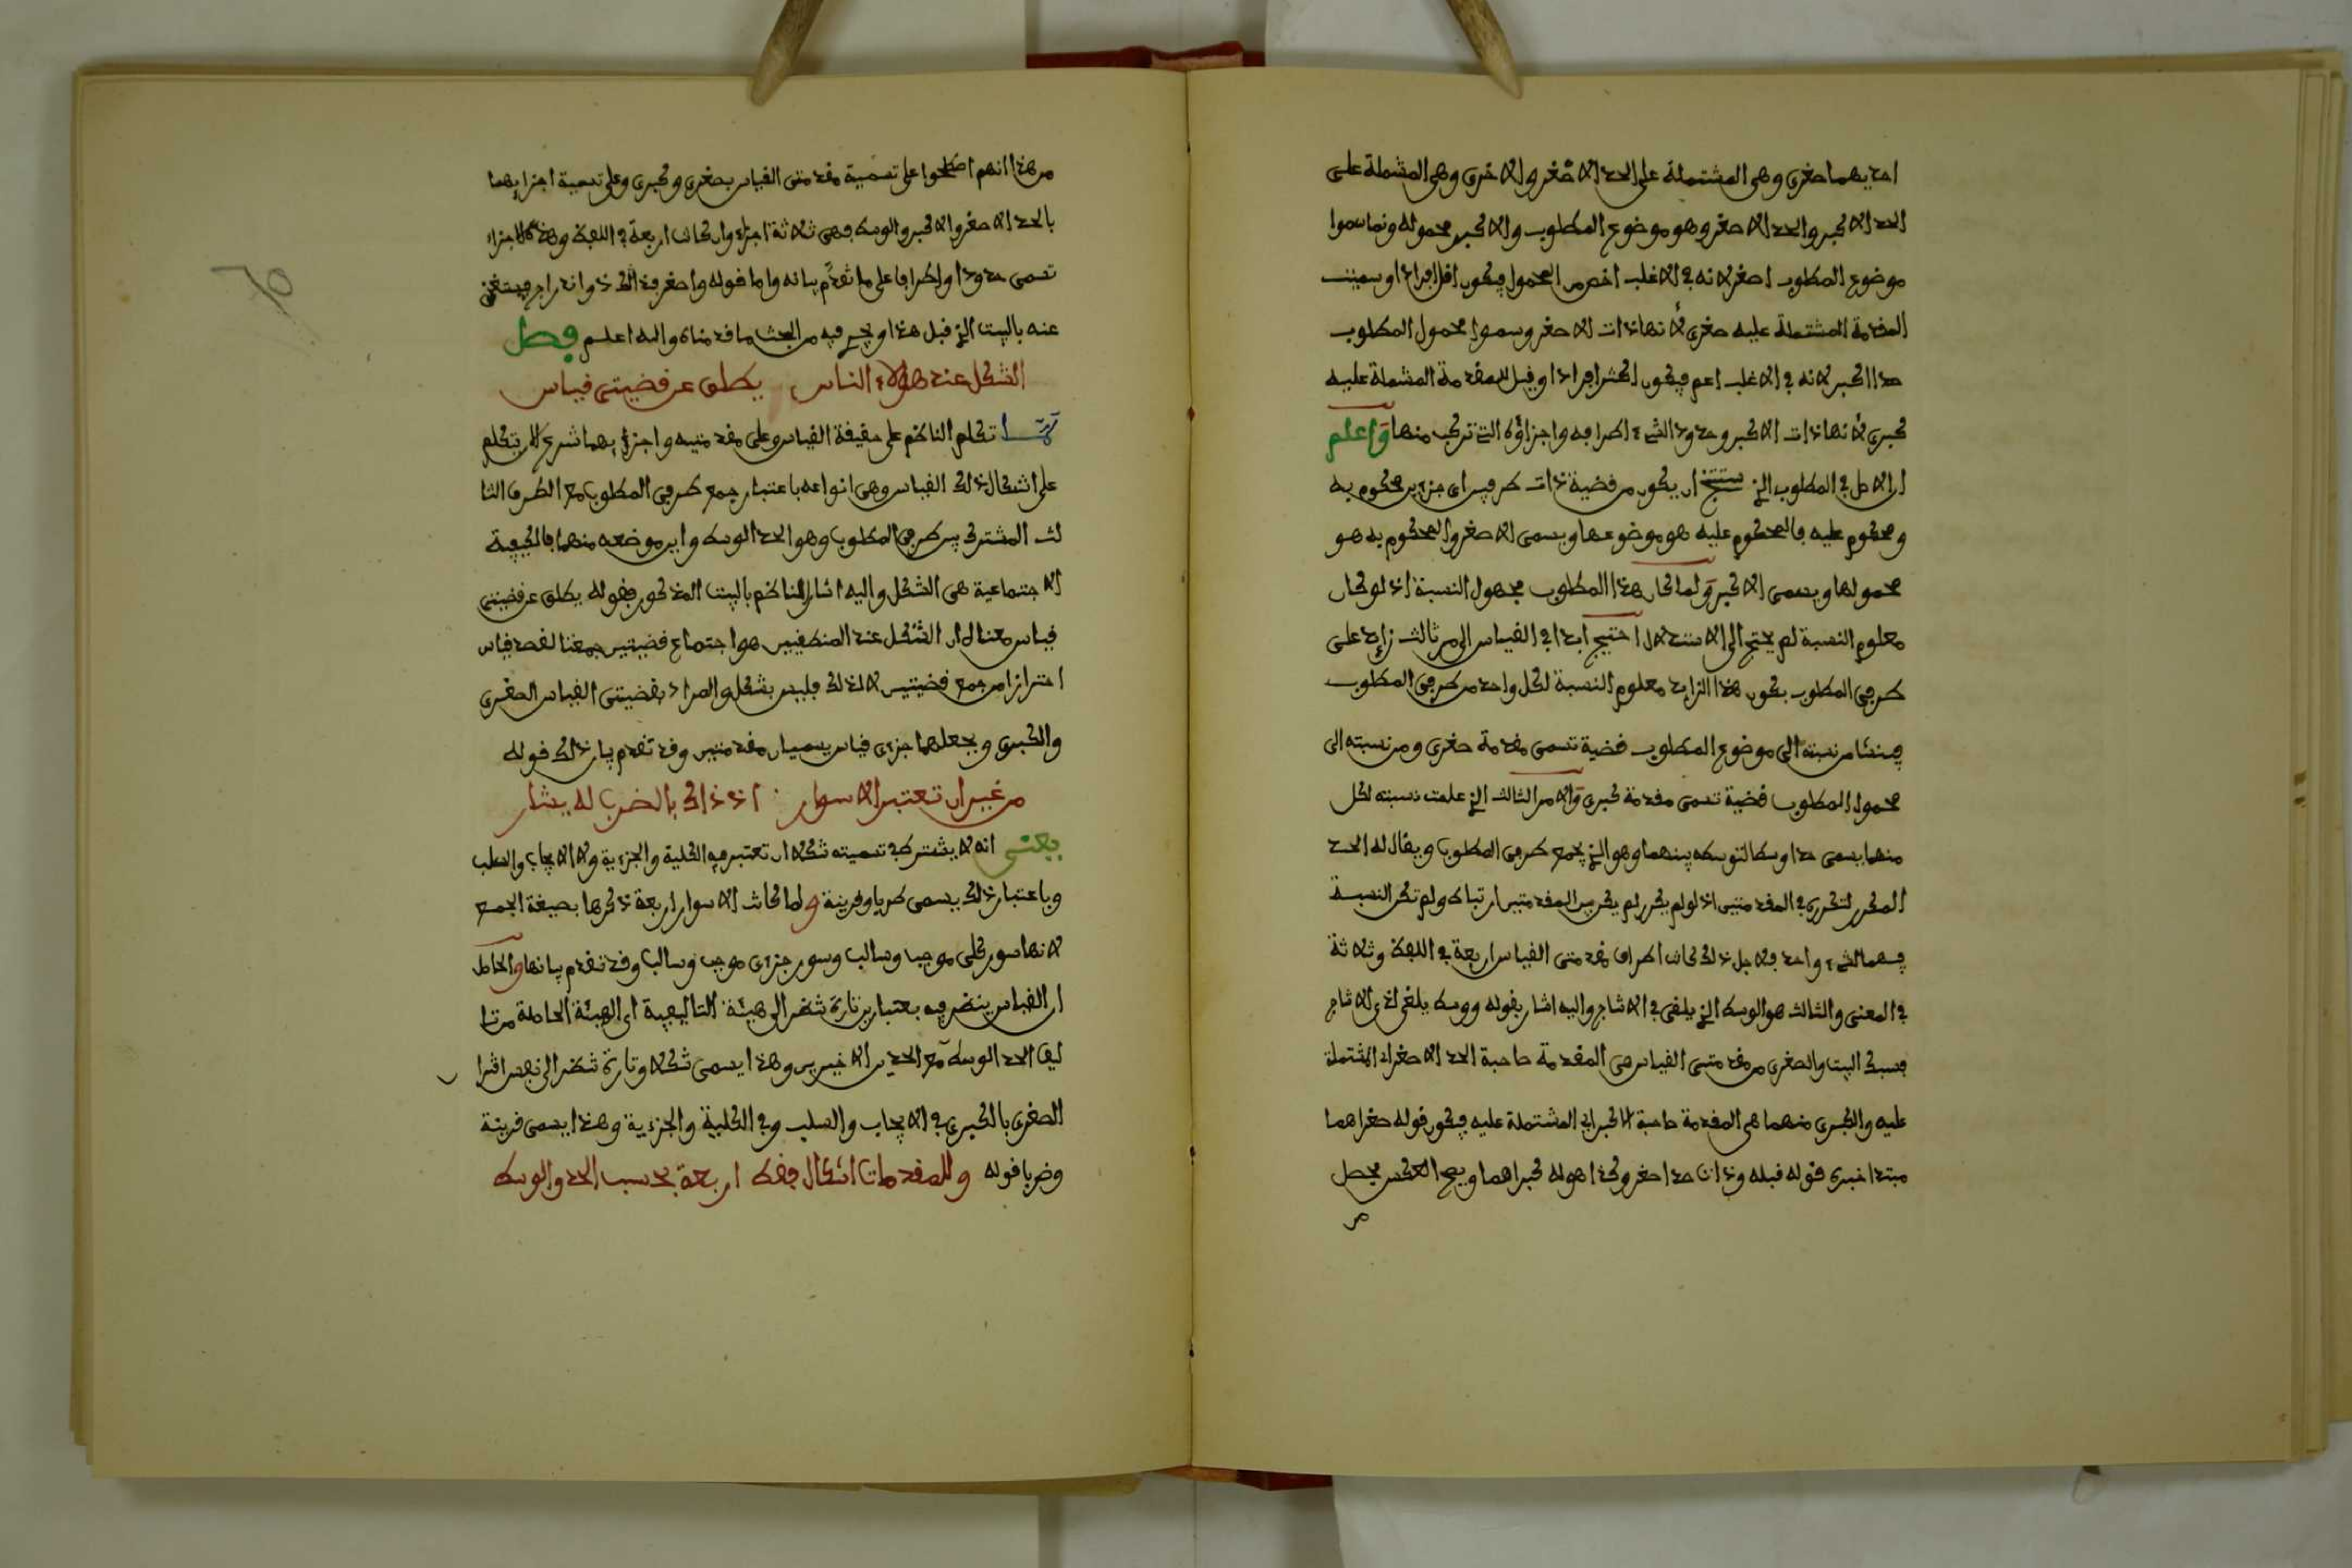 احديهما صغرى وهى المشتملة على الحد الاصغر والاخرى وهى المشملة على
الحد الاكبر والحد الاصغر وهو موضوع المطلوب والاكبر محموله ونما سموا
موضوع المطلوب اصغر لانه في الاغلب اخص من المحمول فيكون اقل افرادا وسميت
المقدمة المشتملة عليه صغرى لأنها ذات الاصغر وسموا محمول المطلوب
حدا اكبر لانه في الاغلب اعم فيكون اكثر افرادا وقيل للمقدمة المشملة عليه
كبرى لأنها ذات الاكبر وحدود الشيء اطرافه واجزاؤه التي تركب منها واعلم
ان الاصل في المطلوب الذي ستنتج ان يكون من قضية ذات طرفين اى جزءين محكوم به
ومحكوم عليه فالمحكوم عليه هو موضوعها ويسمى الاصغر والمحكوم به هو
محمولها ويسمى الاكبر ولما كان هذا المطلوب مجهول النسبة اذ لو كان
معلوم النسبة لم يحتج الى الاستدلال احتيج ابدا في القياس الى مر ثالث زايد على
طرفى المطلوب يكون هذا الزايد معلوم النسبة لكل واحد من طرفى المطلوب
فينشا من نسبته الى موضوع المطلوب قضية تسمى مقدمة صغرى ومن نسبته الى
محمول المطلوب قضية تسمى مقدمة كبرى والامر الثالث الذي علمت نسبته لكل
منهما يسمى حدا وسطا لتوسطه بينهما وهو الذي يجمع طرفى المطلوب ويقال له الحد
المكرر لتكرره في المقدمتين اذ لو لم يكرر لم يكن بين المقدمتين ارتباط ولم تكن النسبة
فيهما لشيء واحد فلاجل ذلك كانت اطراف مقدمتى القياس اربعة في اللفظ وثلاثة
في المعنى والثالث هو الوسط الذي يلغى في الانتاج واليه اشار بقوله ووسط يلغى لدى الانتاج
فسبك البيت والصغرى من مقدمتى القياس هى المقدمة صاحبة الحد الاصغر اى المشتملة
عليه والكبرى منهما هى المقدمة صاحبة الاكبر اى المشتملة عليه فيكون قوله صغراهما
مبتدا خبره قوله قبله وذات حد اصغر وكذا هو له كبراهما ويصح العكس يحصل
من
من هذا انهم اصطلحوا على تسمية مقدمتى القياس بصغرى وكبرى وعلى تسمية اجزايهما
بالحد الاصغر والاكبر والوسط فهى ثلاثة اجزاء وان كانت اربعة في اللفظ وهذه الاجزاء
تسمى حدودا واطرافا على ما تقدم بيانه واما قوله واصغر فذاك ذو اندراج فيستغنى
عنه بالبيت الذي قبل هذا ويجرى فيه من البحث ما قدمناه والله اعلم فصل
الشكل عند هؤلاء الناس يطلق عن قضيتى قياس
لما تكلم الناظم على حقيقة القياس وعلى مقدمتيه واجزايهما شرع الان يتكلم
على اشكال ذلك القياس وهى انواعه باعتبار جمع طرفى المطلوب مع الطرف الثا
لث المشترك بين طرفى المطلوب وهو الحد الوسط واين موضعه منهما فالكيفية
الاجتماعية هى الشكل واليه اشار الناظم بالبيت المذكور فقوله يطلق عن قضيتى
قياس معناه ان الشكل عند المنطقيين هو اجتماع قضيتين جمعتا لقصد قياس
احترازا من جمع قضيتين لا لذلك فليس بشكل والمراد بقضيتى القياس الصغرى
والكبرى وبجعلهما جزءى قياس يسميان مقدمتين وقد تقدم بيان ذلك قوله
من غير ان تعتبر الاسوار اذ ذاك بالضرب له يشار
يعنى انه لا يشترط في تسميته شكلا ان تعتبر فيه الكلية والجزءية ولا الايجاب والسلب
وباعتبار ذلك يسمى ضربا وقرينة ولما كانت الاسوار اربعة ذكرها بصيغة الجمع
لانها سور كلى موجب وسالب وسور جزءى موجب وسالب وقد تقدم بيانها والحاصل
ان القياس ينضر فيه بعتبارين تارة تنضر الى هيئة التاليفية اى الهيئة الحاصلة من تا
ليف الحد الوسط مع الحدين الاخيرين وهذا يسمى شكلا وتارة تنضر الى نفس اقترا
الصغرى بالكبرى في الايجاب والسلب وفي الكلية والجزءية وهذا يسمى قرينة
وضربا قوله وللمقدمات اشكال فقط اربعة بحسب الحد والوسط